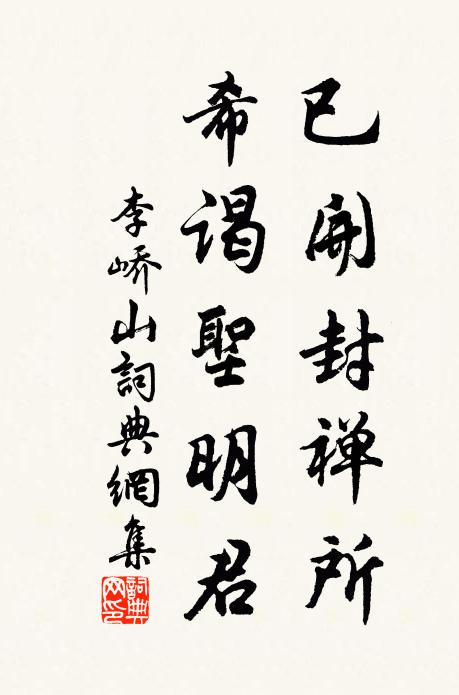 已開封禅所
希谒聖明君
李峤山詞典網集
詞典网印